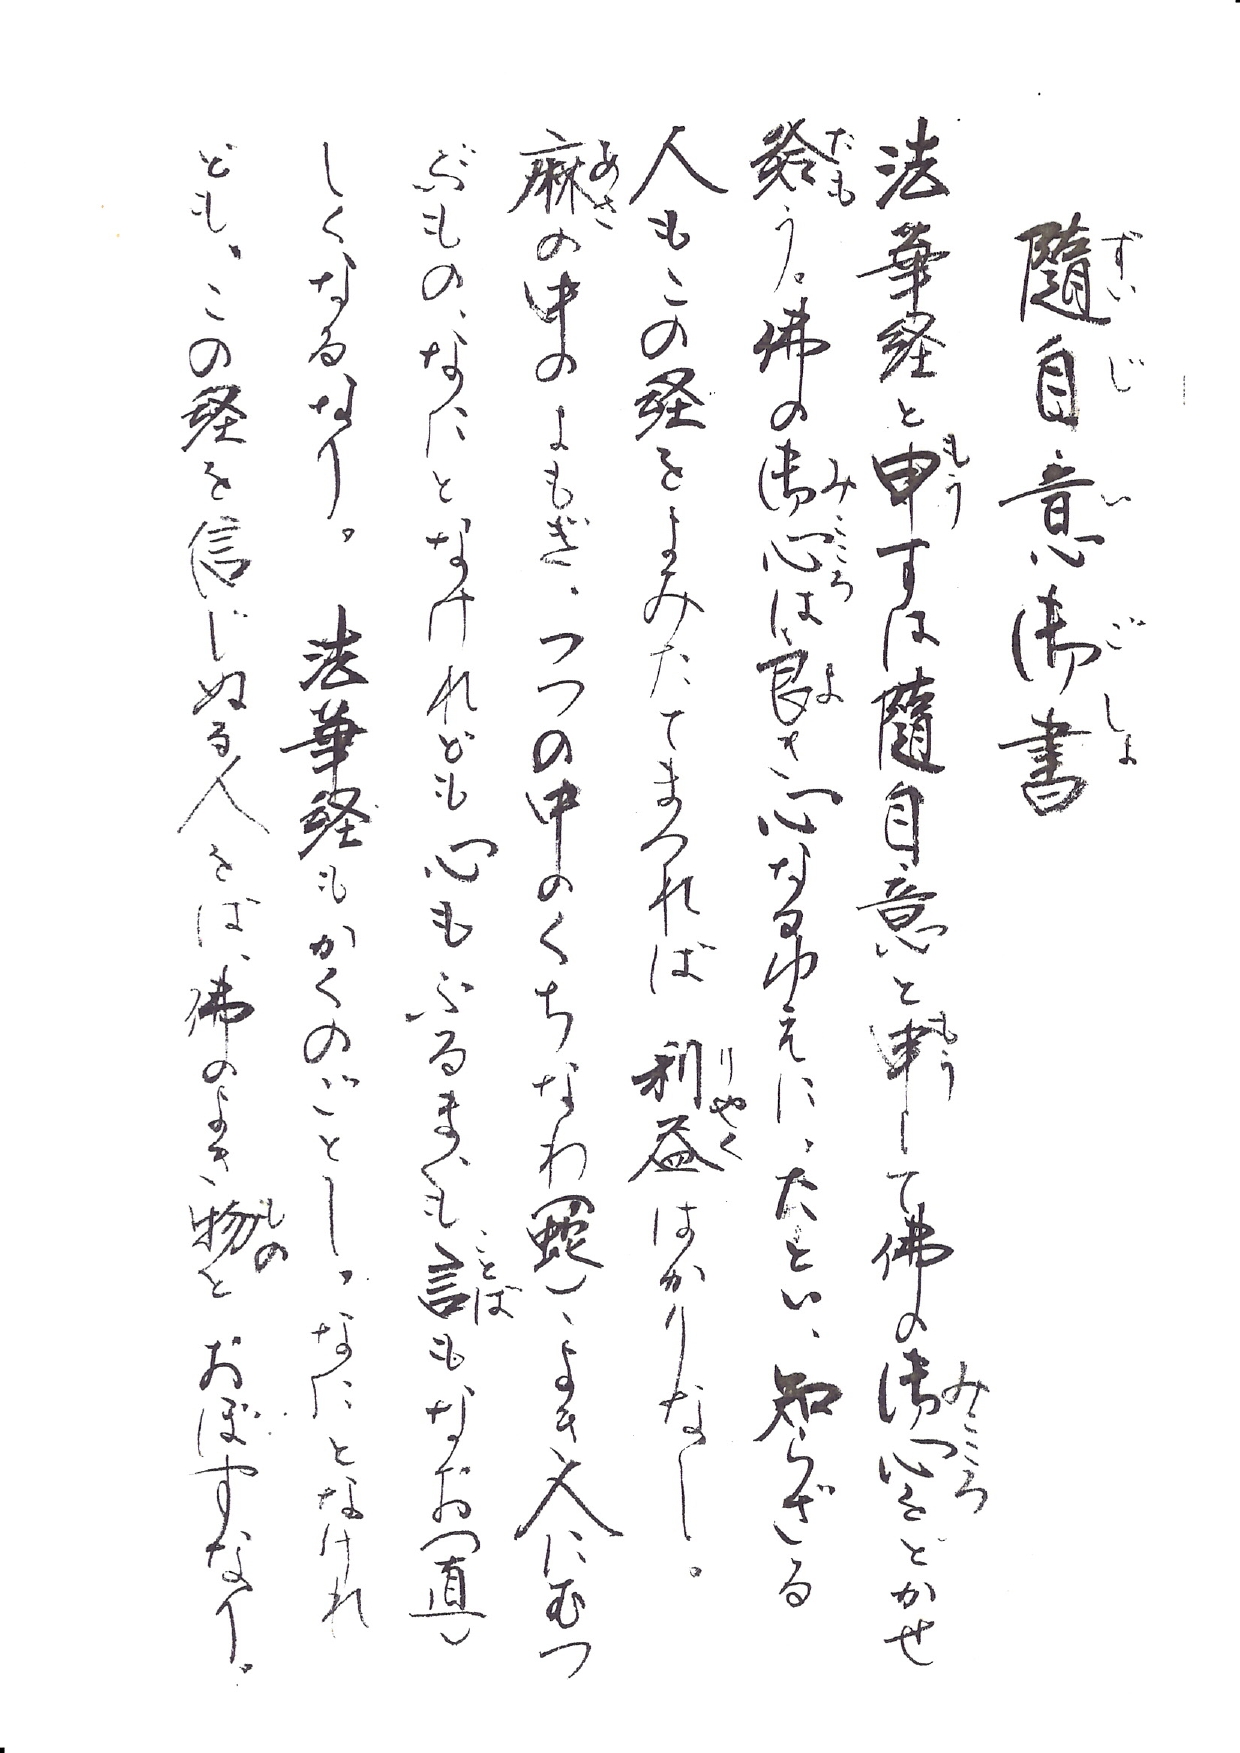 隨自意御書
ずいじいごしょ
法華経と申すは隨自意と申して佛の御心をとかせ
もう もう みこころ
給う。佛の御心は良き心なるゆえに、たとい、知らざる
たも みこころ よ
人もこの経をよみたてまつれば 利益はかりなし。
りやく
麻の中のよもぎ、つつの中のくちなわ(蛇)、よき人にむつ
あさ
ぶもの、なにとなけれども心もふるまいも言もなお(直)
ことば
しくなるなり。 法華経もかくのごとし。なにとなけれ
ども、この経を信じぬる人をば、佛のよき物とおぼすなり。
もの